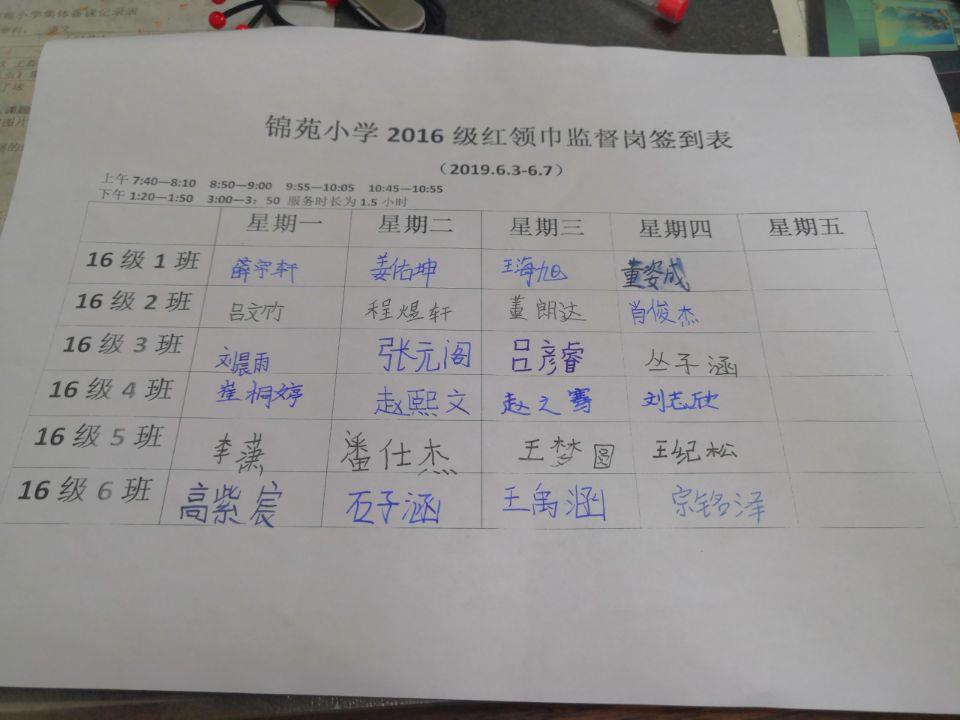 小学集体备课记录表
锦苑小学2016级红领巾监督岗签到表
（2019.6.3-6.7）
上午7:40—8:10 8:50—9:00 9:55—10:05 10:45—10:55
下午1:20—1:50 3:00—3：50 服务时长为1.5小时
星期一 星期二 星期三 星期四 星期五
16级1班 薛宇轩 姜佑坤 王海旭 董姿成
16级2班 吕文竹 程煜轩 董朗达 肖俊杰
16级3班 刘晨雨 张元阁 吕彦睿 丛子涵
16级4班 崔桐婷 赵熙文 赵之骞 刘志欣
16级5班 李潇 潘仕杰 王梦圆 王纪松
16级6班 高紫宸 石子涵 王禹涵 宗铭泽